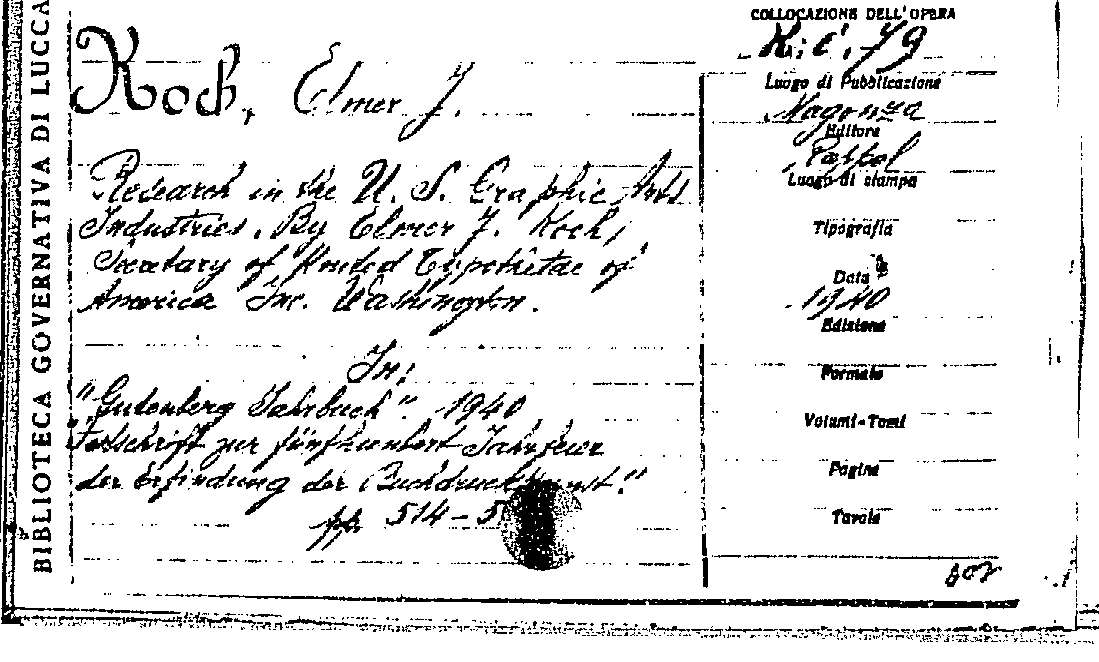 BIBLIOTECA GOVERNATIVA DI LUCCA
Koch, Elmer J.
Research in the U. S. Graphic Arts
Industries. By Elmer J. Koch,
Secretary of Typothetae of
America Inc. Washington.
In:
"Gutenberg Jahrbuch". 1940
Festschrift zur fünfhundert Jahrfeier
der Erfindung der
pp. 514-5
COLLOCAZIONE DELL'OPERA
79
Luogo di Pubblicazione
Magonza
Editore
Luogo di stampa
Tipografia
Data
1940
Edizione
Formato
Volumi-Tomi
Pagine
Tavole